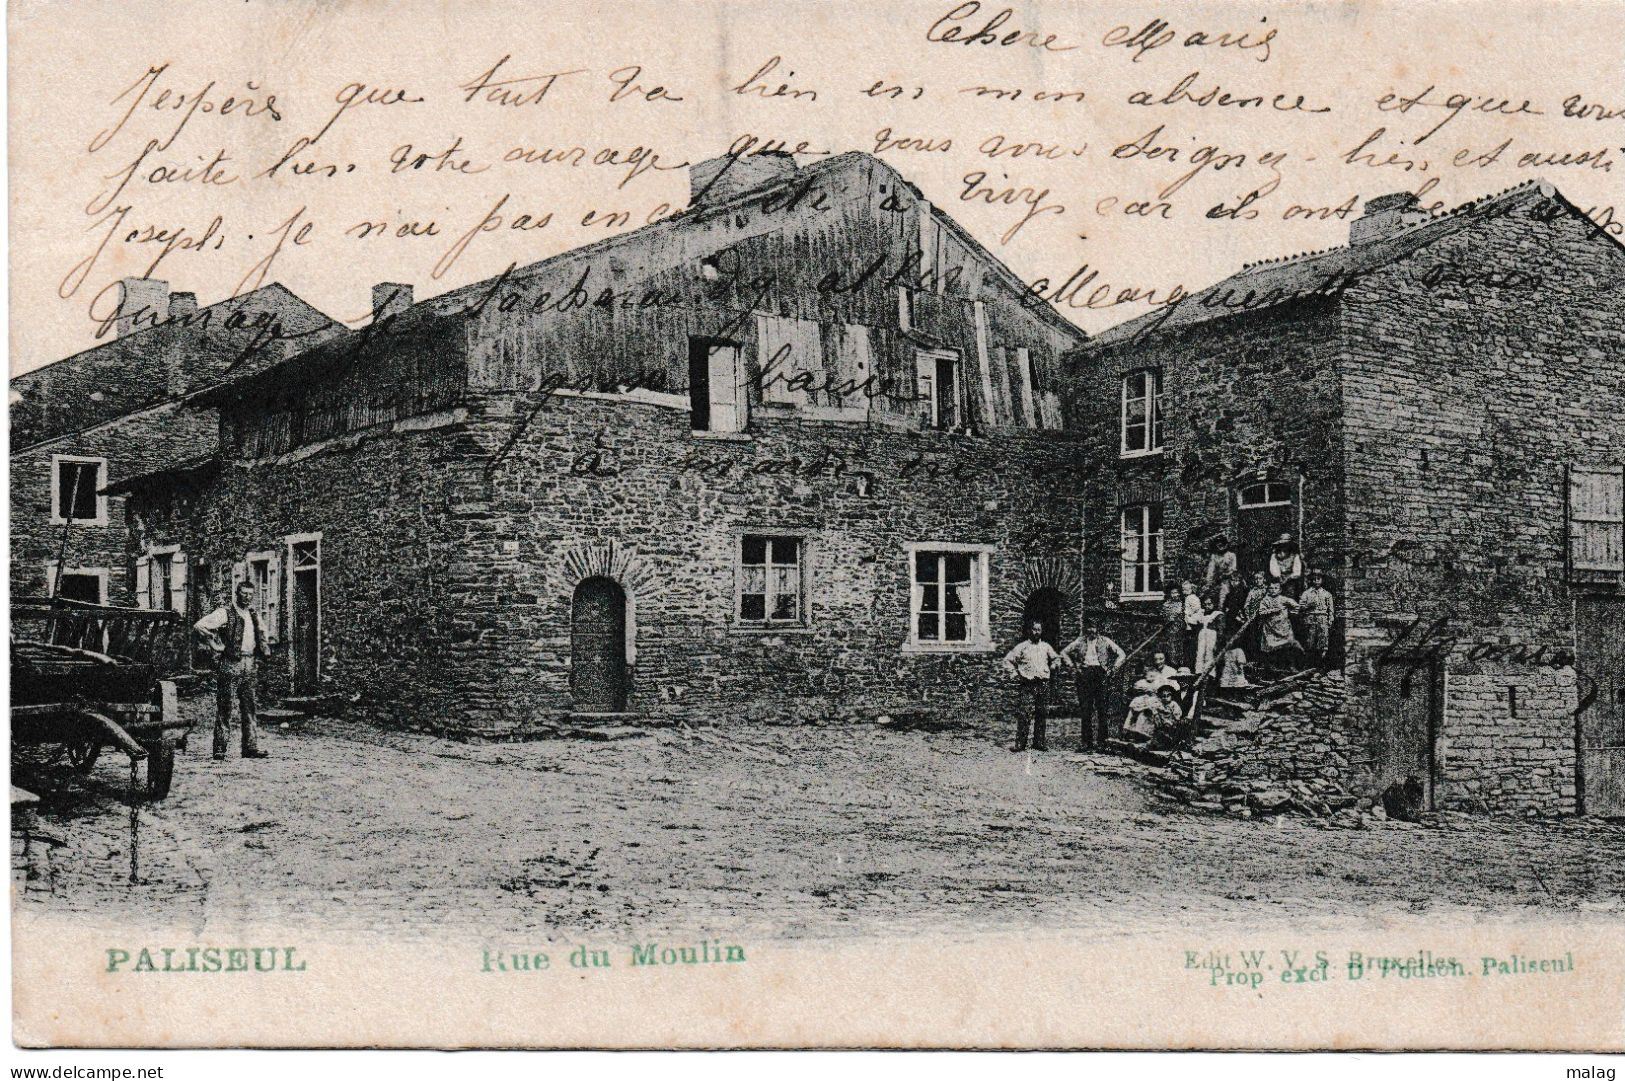 Chere Marie
J'espère que tout va bien en mon absence et que vous
faite bien votre ouvrage que vous vous soignez bien et aussi
Joseph. Je n'ai pas encor été à Vivy car ils ont beaucoup
d'ouvrage je tacherai d'y aller Marguerite vous
gros baiser
à mardi ou
PALISEUL
Rue du Moulin
Edit W. V. S. Bruxelles
Prop excl. D Podson. Paliseul
delcampe.net
malag